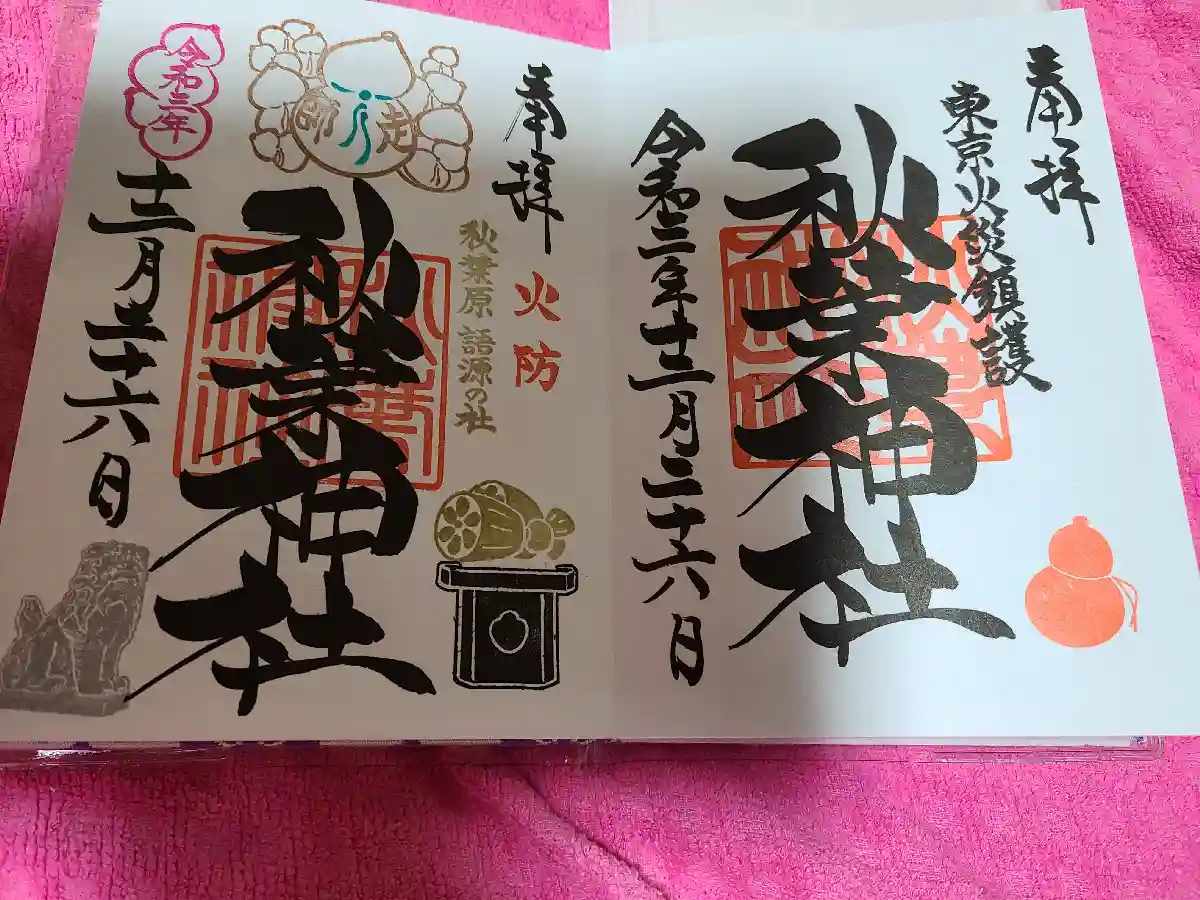 奉拝
東京火災鎮護
秋葉神社
令和三年十二月二十六日
奉拝
火防
秋葉原 語源の社
師走
秋葉神社
令和三年
十二月二十六日